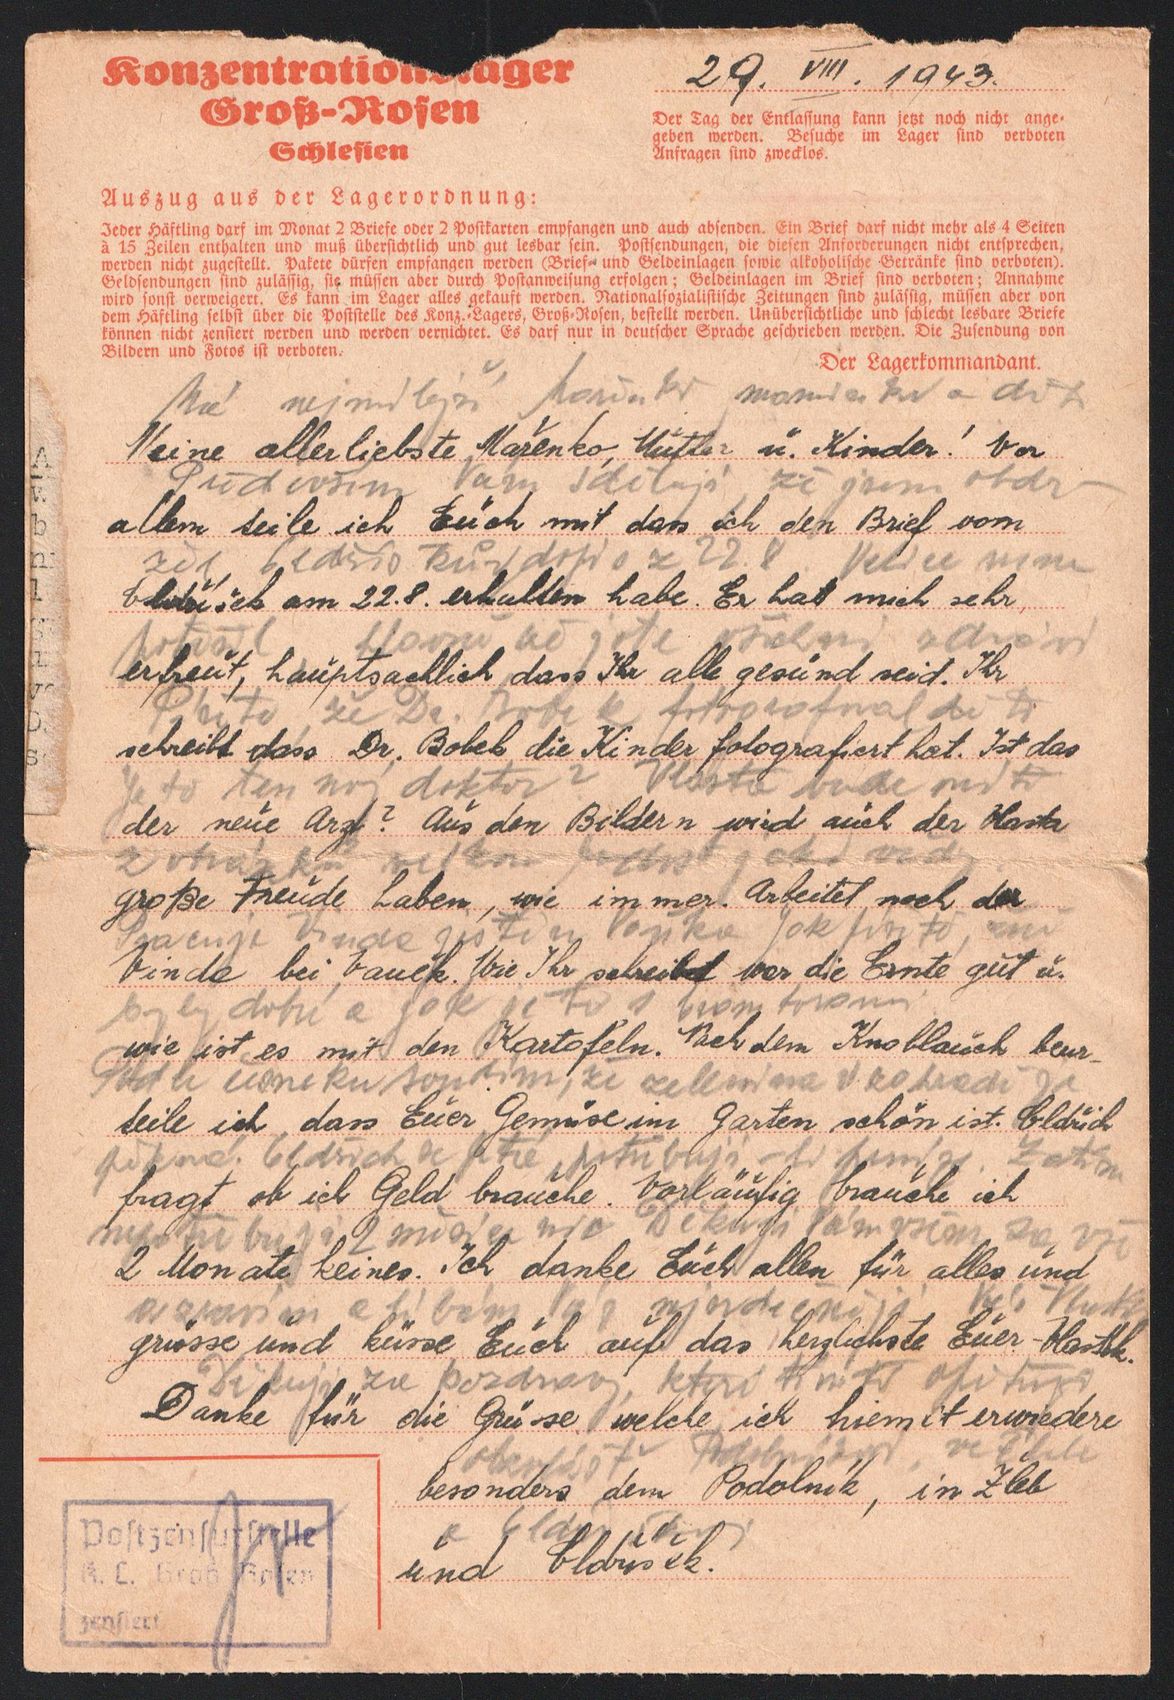 Konzentrationslager
Groß-Rosen
Schlesien
29. VIII. 1943.
Der Tag der Entlassung kann jetzt noch nicht ange-
geben werden. Besuche im Lager sind verboten
Anfragen sind zwecklos.
Auszug aus der Lagerordnung:
Jeder Häftling darf im Monat 2 Briefe oder 2 Postkarten empfangen und auch absenden. Ein Brief darf nicht mehr als 4 Seiten
à 15 Zeilen enthalten und muß übersichtlich und gut lesbar sein. Postsendungen, die diesen Anforderungen nicht entsprechen,
werden nicht zugestellt. Pakete dürfen empfangen werden (Brief- und Geldeinlagen sowie alkoholische Getränke sind verboten).
Geldsendungen sind zulässig, sie müssen aber durch Postanweisung erfolgen; Geldeinlagen im Brief sind verboten; Annahme
wird sonst verweigert. Es kann im Lager alles gekauft werden. Nationalsozialistische Zeitungen sind zulässig, müssen aber von
dem Häftling selbst über die Poststelle des Konz.-Lagers, Groß-Rosen, bestellt werden. Unübersichtliche und schlecht lesbare Briefe
können nicht zensiert werden und werden vernichtet. Es darf nur in deutscher Sprache geschrieben werden. Die Zusendung von
Bildern und Fotos ist verboten.
Der Lagerkommandant.
Má nejmilejší Mařenko maminko a
Meine allerliebste Mařenko, Mutter u. Kinder! Vor
Předevšim Vám sděluji, že jsem obdr-
allem teile ich Euch mit dass ich den Brief vom
žel z 22.8. Velice mne
am 22.8. erhalten habe. Er hat mich sehr
potěšil hlavně že jste všichni zdraví
erfreut, hauptsachlich dass Ihr alle gesund seid. Ihr
Pišete že Dr. Bobek fotografoval děti
schreibt dass Dr. Bobek die Kinder fotografiert hat. Ist das
Je to ten nový doktor? Vlasta bude míti
der neue Arzt? Aus den Bildern wird auch der Vlasta
z obrázků velkou radost jako vždy
große Freude haben, wie immer. Arbeitet noch der
Pracuje Vinda ještě u jak pišete, žně
Vinda bei Vauck. Wie Ihr schreibt war die Ernte gut u.
byly dobré a jak je to s bramborami
wie ist es mit den Kartofeln. Nach dem Knoblauch beur-
Podle česneku soudím, že zelenina v zahradě je
teile ich dass Euer Gemüse im Garten schön ist. Eldřich
pěkná. Eldřich se ptá, potřebuji-li peníze. Zatím
fragt ob ich Geld brauche. Vorläufig brauche ich
nepotřebuji 2 měsíce nic Děkuji Vám všem za vše
2 Monate keines. Ich danke Euch allen für alles und
a zdravím a líbám Vás nejsrdečněji Váš
grüsse und küsse Euch auf das herzlichste Euer
Děkuji za pozdravy, které tímto opětuji
Danke für die Grüsse welche ich hiemit erwiedere
obzvlášť
besonders dem Podolník, in Žleb
a
und Eldříšek.
Postzensurstelle
K. L. Groß Rosen
zensiert